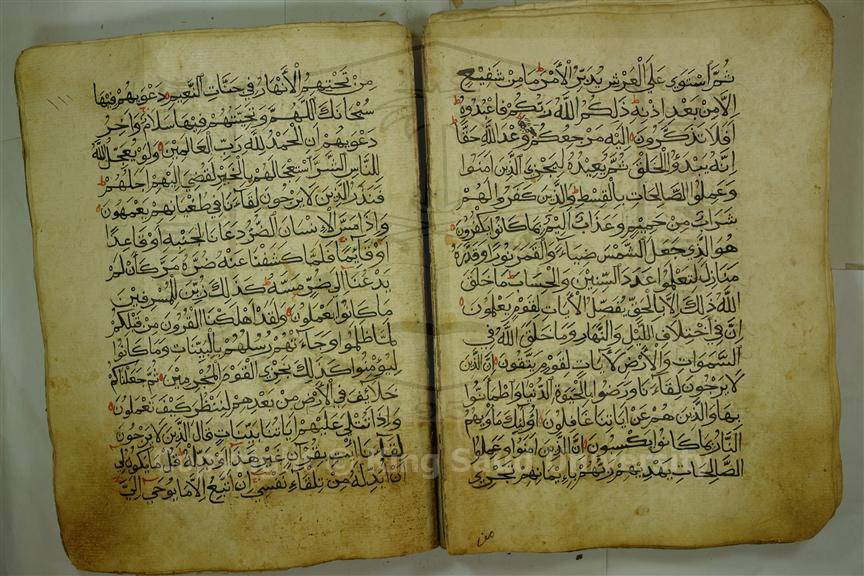 ثم استوى على العرش يدبر الأمر ما من شفيع
إلا من بعد اذنه ذلكم الله ربكم فاعبدوه
أفلا تذكرون اليه مرجعكم وعد الله حقا
إنه يبدؤ الخلق ثم يعيده ليجزي الذين امنوا
وعملوا الصالحات بالقسط والذين كفروا لهم
شراب من حميم وعذاب اليم بما كانوا يكفرون
هو الذي جعل الشمس ضياء والقمر نورا وقدره
منازل لتعلموا عدد السنين والحساب ما خلق
الله ذلك إلا بالحق يفصل الآيات لقوم يعلمون
إن في اختلاف الليل والنهار وما خلق الله في
السموات والأرض لآيات لقوم يتقون إن الذين
لا يرجون لقاءنا ورضوا بالحيوة الدنيا واطمأنوا
بها والذين هم عن اياتنا غافلون أولئك مأويهم
النار بما كانوا يكسبون إن الذين امنوا وعملوا
الصالحات يهديهم ربهم بإيمانهم تجري
من
١١١
من تحتهم الأنهار في جنات النعيم دعويهم فيها
سبحانك اللهم وتحيتهم فيها سلام وآخر
دعويهم ان الحمد لله رب العالمين ولو يعجل الله
للناس الشر استعجالهم بالخير لقضي اليهم اجلهم
فنذر الذين لا يرجون لقاءنا في طغيانهم يعمهون
وإذا مس الإنسان الضر دعانا لجنبه أو قاعدا
أو قائما فلما كشفنا عنه ضره مر كأن لم
يدعنا إلى ضر مسه كذلك زين للمسرفين
ما كانوا يعملون ولقد اهلكنا القرون من قبلكم
لما ظلموا وجاءتهم رسلهم بالبينات وما كانوا
ليؤمنوا كذلك نجزي القوم المجرمين ثم جعلناكم
خلائف في الأرض من بعدهم لننظر كيف تعملون
وإذا تتلى عليهم اياتنا بينات قال الذين لا يرجون
لقاءنا ائت بقرآن غير هذا أو بدله قل ما يكون لي
أن ابدله من تلقاء نفسي إن أتبع إلا ما يوحى إلي